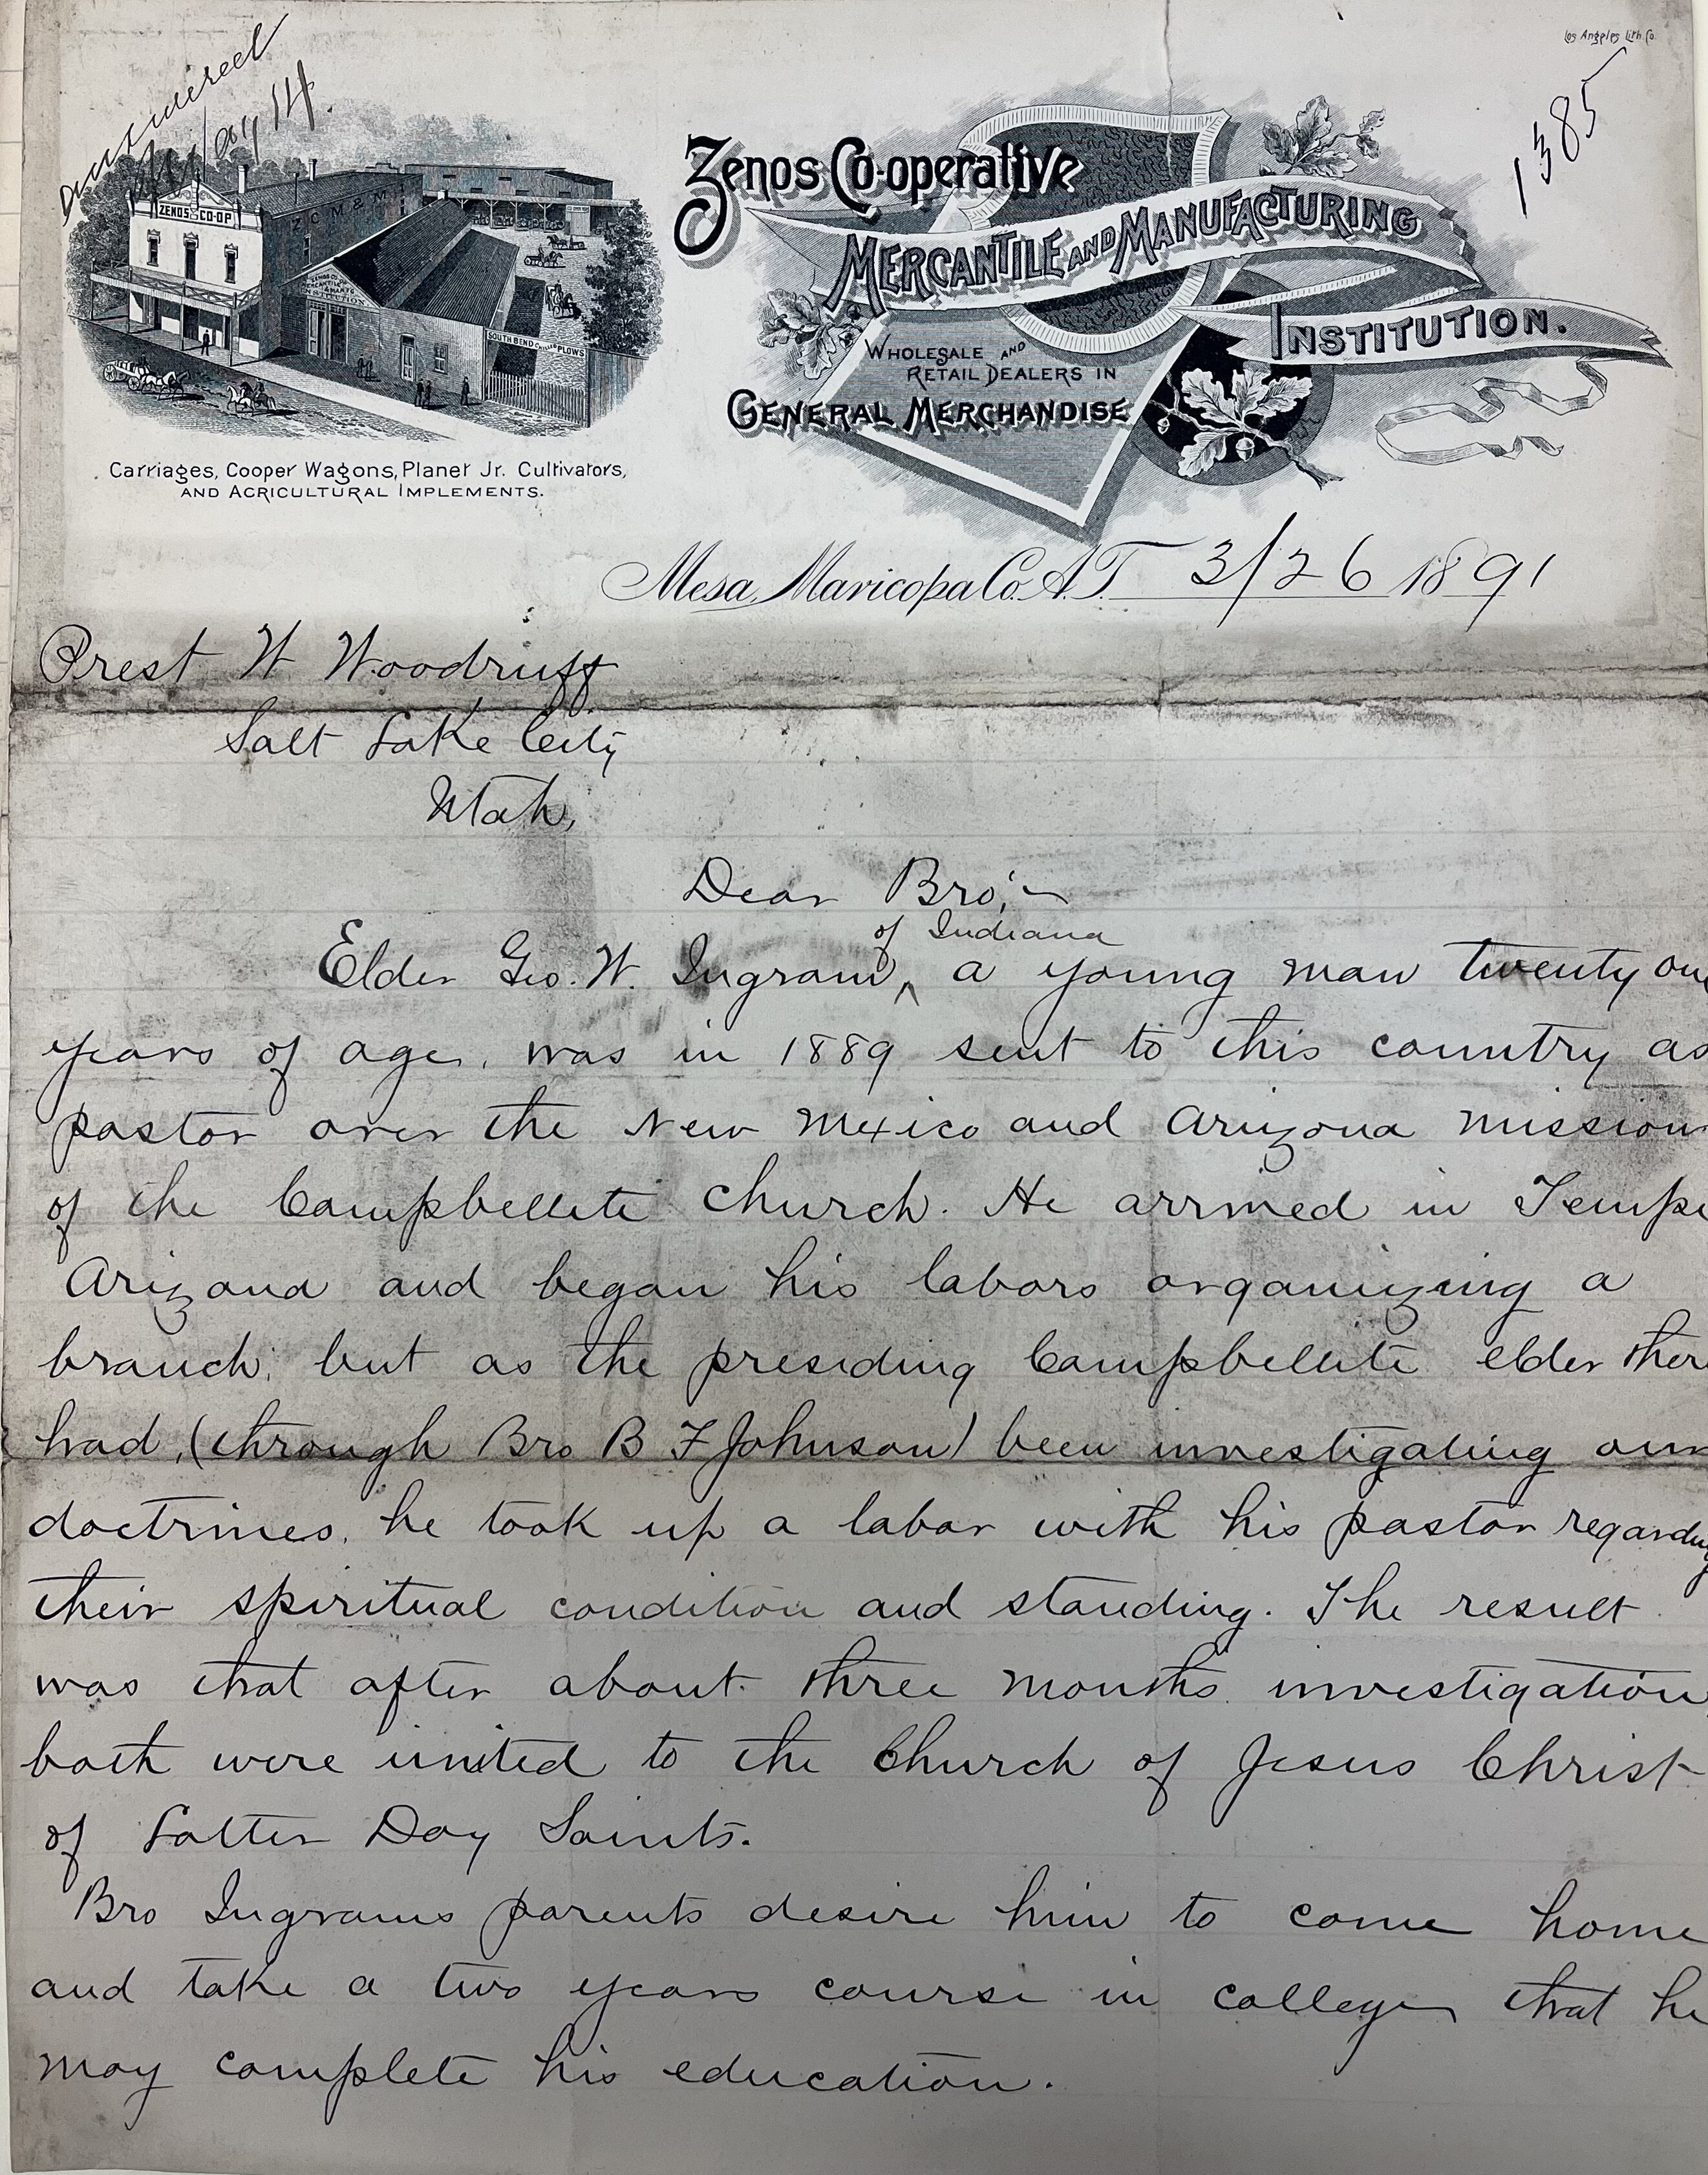 Answered
May 14.
Los Angeles Lith. Co.
1385
ZENOS CO-OP
Z. C. M. & M. I.
SOUTH BEND CHILLED PLOWS
Carriages, Cooper Wagons, Planet Jr. Cultivators,
AND AGRICULTURAL IMPLEMENTS.
Zenos Co-operative
MERCANTILE AND MANUFACTURING
INSTITUTION.
WHOLESALE AND
RETAIL DEALERS IN
GENERAL MERCHANDISE
Mesa, Maricopa Co. A.T. 3/26 1891
Prest W Woodruff
Salt Lake City
Utah,
Dear Bro;-
of Indiana
Elder Geo. W. Ingram, ^ a young man twenty one
years of age, was in 1889 sent to this country as
pastor over the New Mexico and Arizona mission
of the Campbellite church. He arrived in Tempe
Arizona and began his labors organizing a
branch; but as the presiding Campbellite elder there
had, (through Bro B F Johnson) been investigating our
doctrines, he took up a labor with his pastor regarding
their spiritual condition and standing. The result
was that after about three months investigation,
both were united to the Church of Jesus Christ
of Latter Day Saints.
Bro Ingrams parents desire him to come home
and take a two years course in college that he
may complete his education.